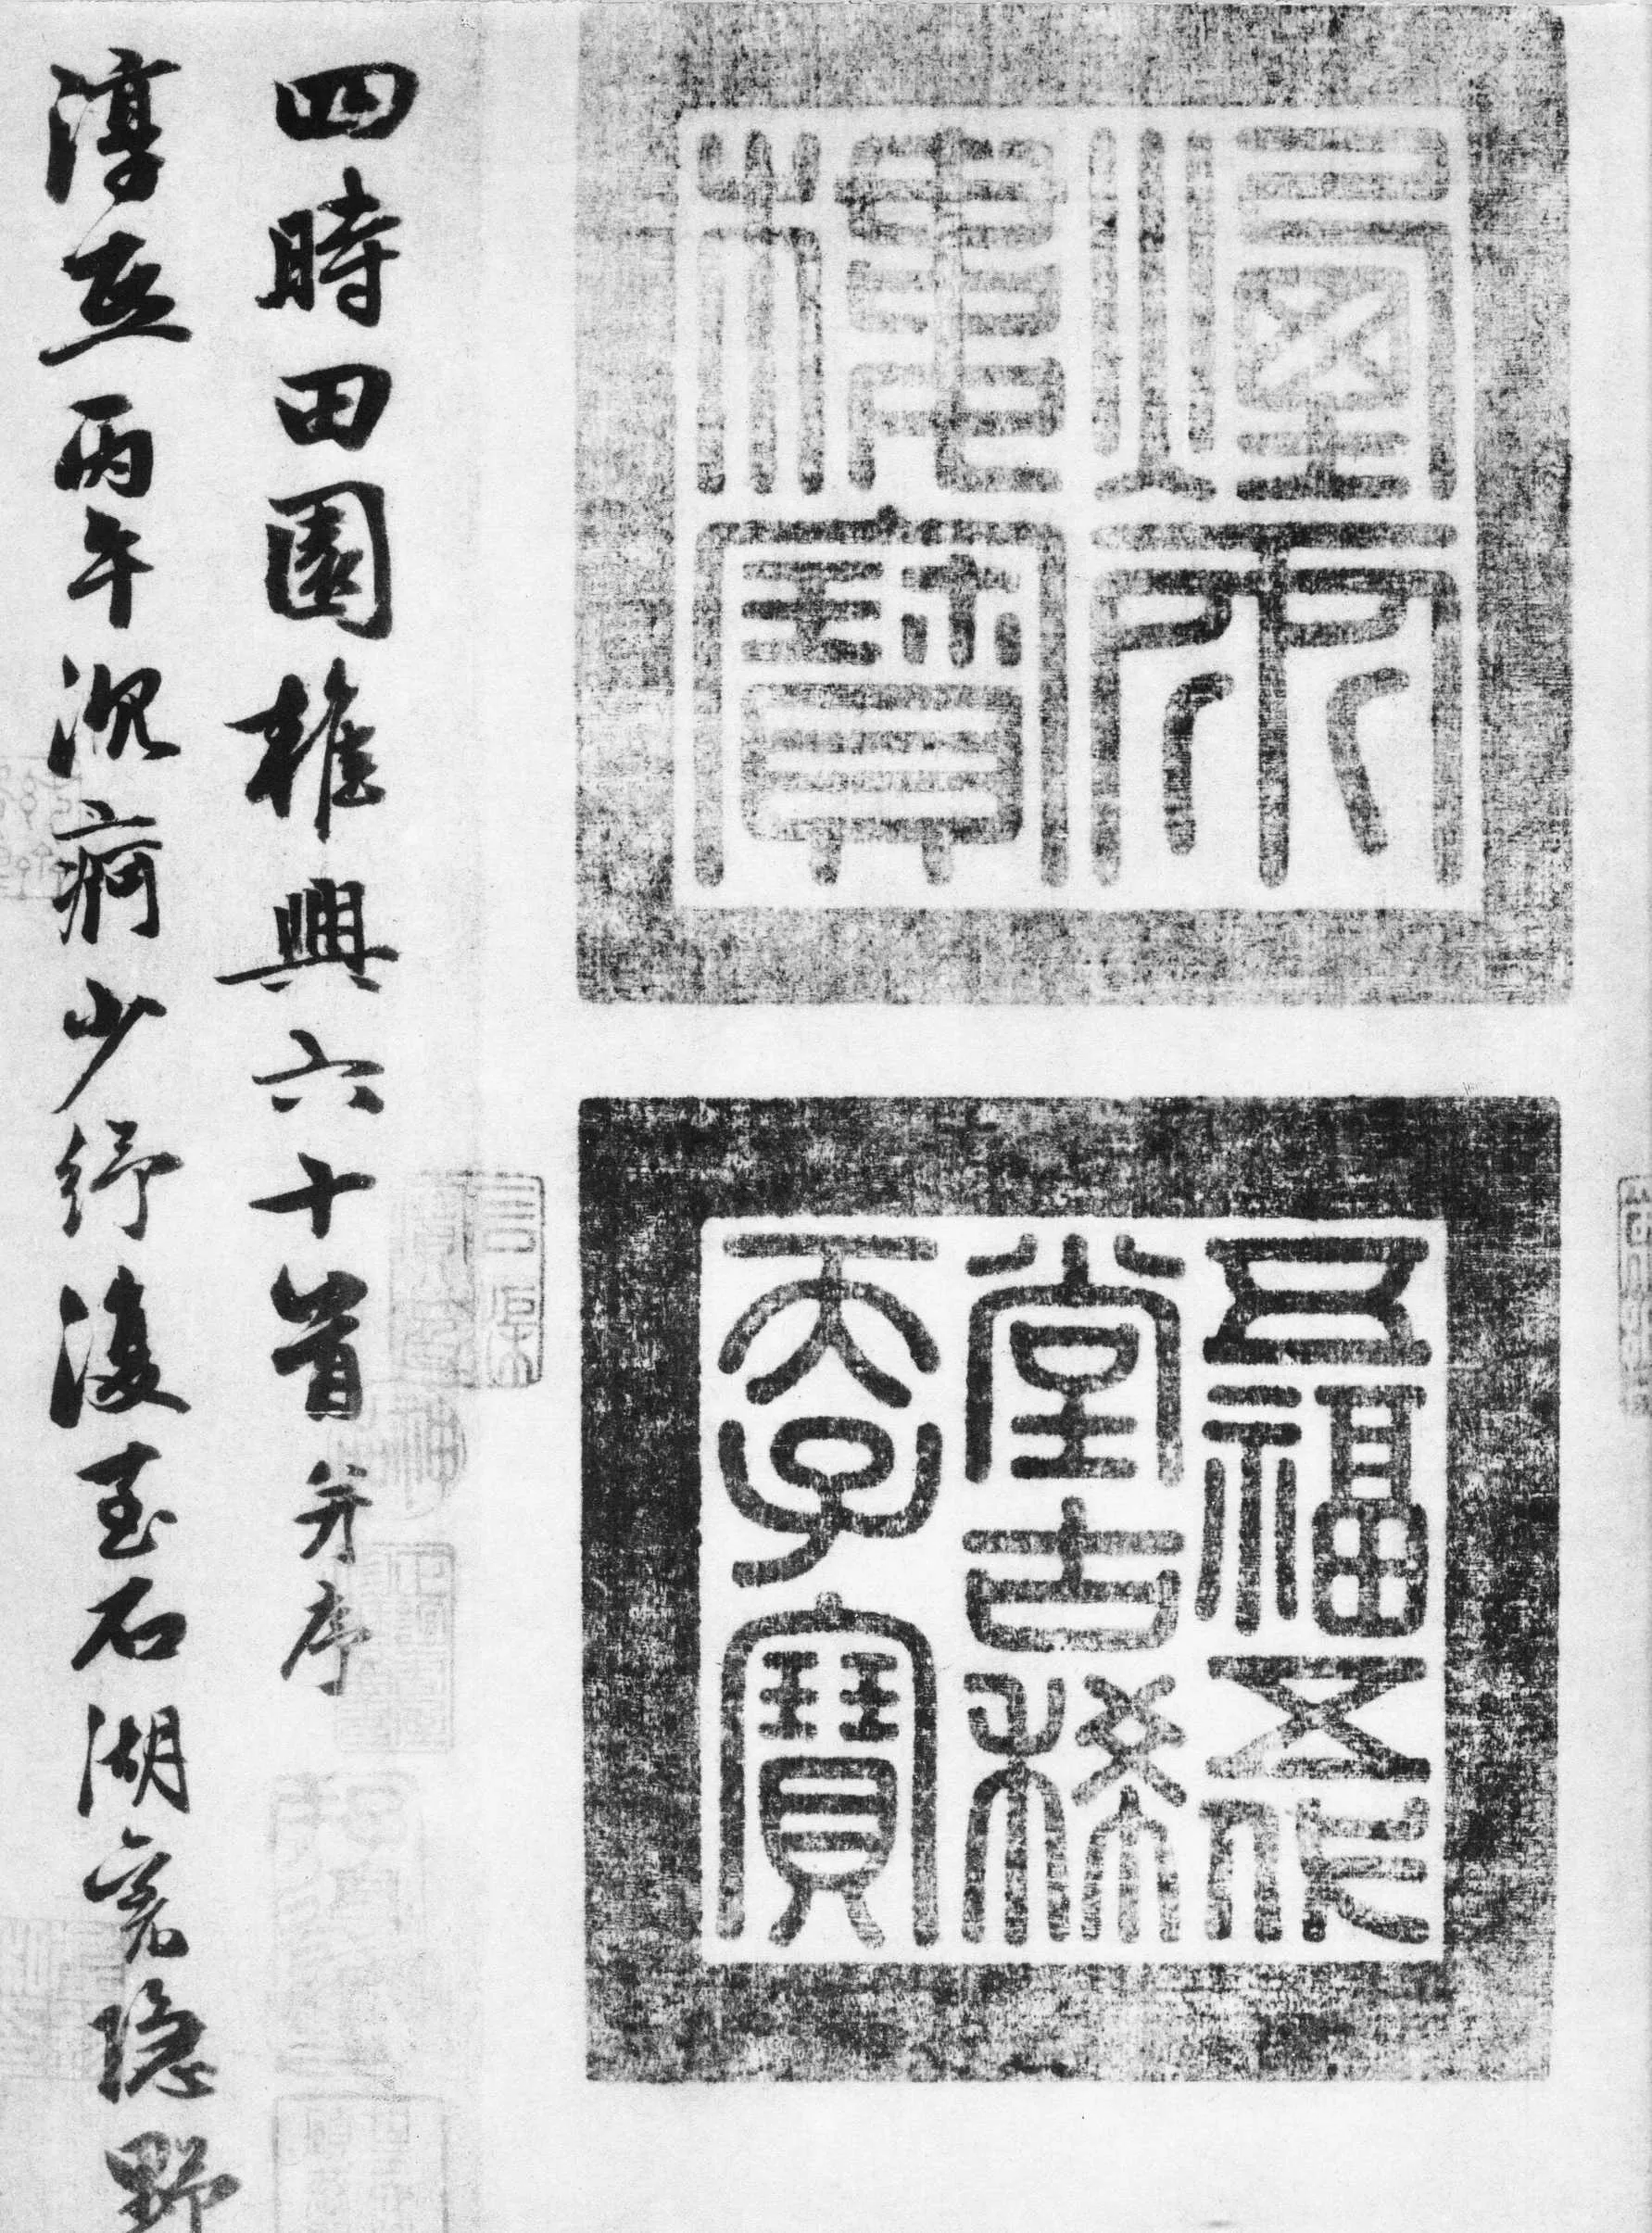 煙雨
樓寶
五福五代
堂古稀
天子寶
四時田園雜興六十首并序
淳熙丙午沉疴少紓復至石湖舊隱野